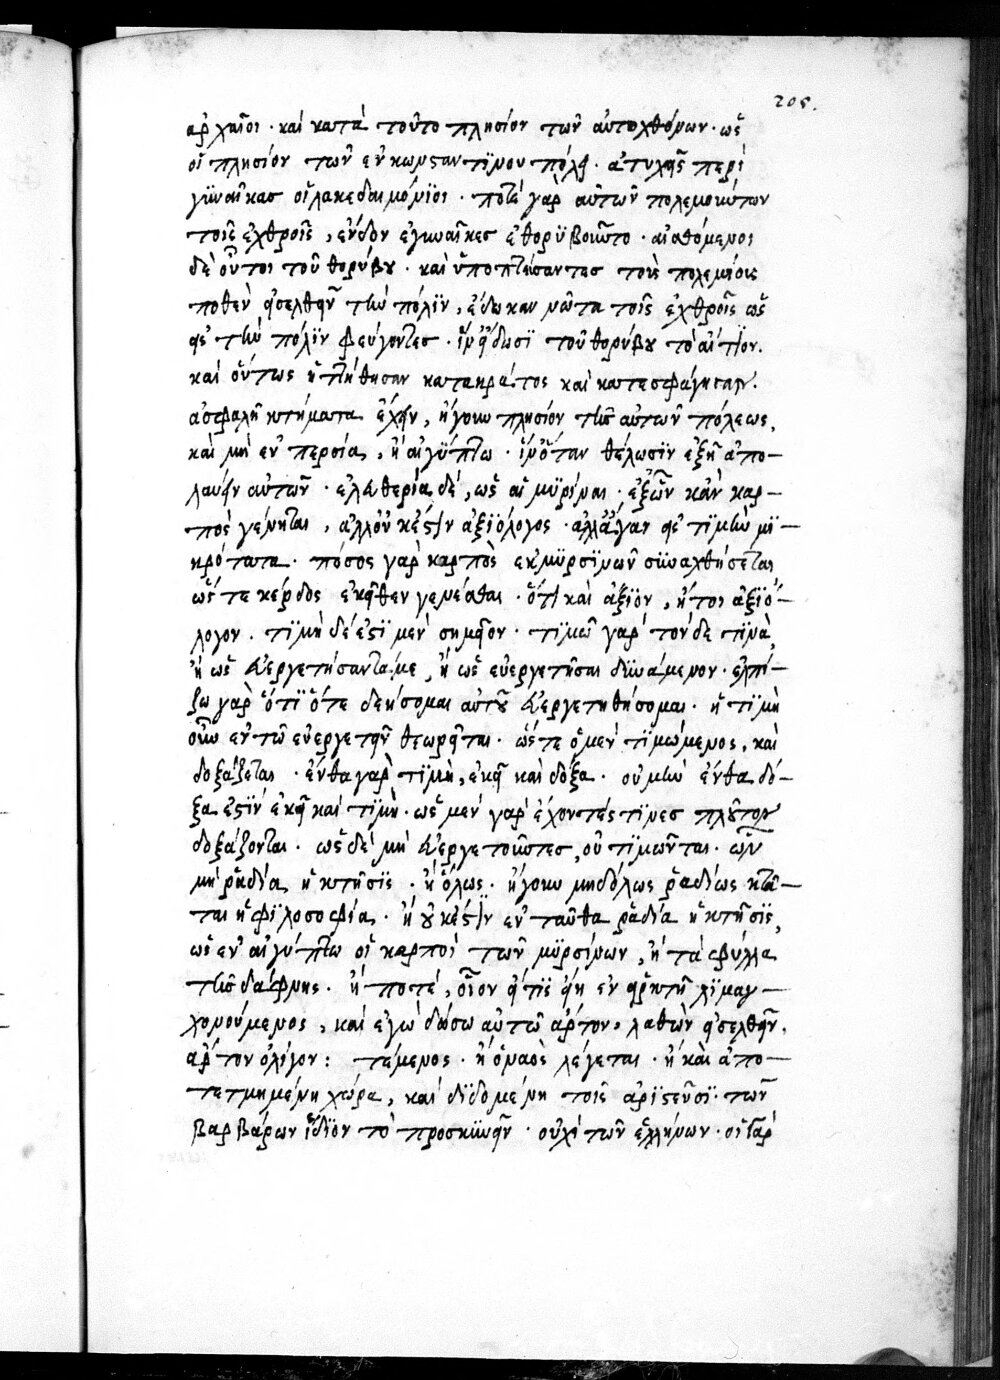 205.
ἀρχαῖοι · καὶ κατὰ τοῦτο πλησίον τῶν αὐτοχθόνων · ὡς
οἱ πλησίον τῶν ἐν κωνσταντίνου πόλει · ἀτυχεῖς περὶ
γυναῖκας οἱ λακεδαιμόνιοι · ποτὲ γὰρ αὐτῶν πολεμούντων
τοῖς ἐχθροῖς, ἔνδον ἐγυναῖκες ἐθορυβοῦντο · αἰσθόμενοι
δὲ οὗτοι τοῦ θορύβου · καὶ ὑποπτεύσαντες τοὺς πολεμίους
ποθὲν εἰσελθεῖν τὴν πόλιν, ἔδωκαν νῶτα τοῖς ἐχθροῖς ὡς
εἰς τὴν πόλιν φεύγοντες · ἵν' εἰδῶσι τοῦ θορύβου τὸ αἴτιον.
καὶ οὕτως ἡττήθησαν κατακράτος καὶ κατεσφάγησαν.
ἀσφαλῆ κτήματα ἔχειν, ἤγουν πλησίον τῆς αὐτῶν πόλεως,
καὶ μὴ ἐν περσία, ἢ αἰγύπτω · ἵν' ὅταν θέλωσιν ἐξῇ ἀπο-
λαύειν αὐτῶν · ἐλευθερία δέ, ὡς αἱ μυρίναι · ἐξῶν κἂν καρ-
πὸς γένηται, ἀλλ' οὐκ ἔστιν ἀξιόλογος · ἀλλ' ἄγαν εἰς τιμὴν μι-
κρότατα · πόσος γὰρ καρπὸς ἐκ μυρσινῶν συναχθήσεται
ὥστε κέρδος ἐκεῖθεν γενέσθαι · ὅτι καὶ ἄξιον, ἤτοι ἀξιό-
λογον. τιμὴ δέ ἐστι μὲν σημεῖον · τιμῶ γὰρ τόνδε τινὰ,
ἢ ὡς εὐεργετήσαντά με, ἢ ὡς εὐεργετῆσαι δυνάμενον · ἐλπί-
ζω γὰρ ὅτι ὅτε δεήσομαι αὐτοῦ εὐεργετηθήσομαι. ἡ τιμὴ
οὖν ἐν τῶ εὐεργετεῖν θεωρεῖται · ὥστε ὁ μὲν τιμώμενος, καὶ
δοξάζεται · ἔνθα γὰρ τιμὴ, ἐκεῖ καὶ δόξα · οὐ μὴν ἔνθα δό-
ξα ἐστὶν ἐκεῖ καὶ τιμὴ · ὡς μὲν γὰρ ἔχοντές τινες πλοῦτον
δοξάζονται · ὡς δὲ μὴ εὐεργετοῦντες, οὐ τιμῶνται · ὧν
μὴ ῥαδία ἡ κτῆσις · ἢ ὅλως · ἤγουν μηδόλως ῥαδίως κτᾶ-
ται ἡ φιλοσοφία · ἢ οὐκ ἔστιν ἐνταῦθα ῥαδία ἡ κτῆσις,
ὡς ἐν αἰγύπτω οἱ καρποὶ τῶν μυρσίνων, ἢ τὰ φύλλα
τῆς δάφνης · ἢ ποτὲ, οἷον εἴ τις εἴη ἐν εἱρκτῆ λιμαγ-
χονούμενος, καὶ ἐγὼ δώσω αὐτῶ ἄρτον, λαθὼν εἰσελθεῖν.
ἄρτον ὀλίγον: τέμενος · ἢ ὁ ναὸς λέγεται · ἢ καὶ ἀπο-
τετμημένη χώρα, καὶ διδομένη τοῖς ἀριστεῦσι · τῶν
βαρβάρων ἴδιον τὸ προσκυνεῖν · οὐχὶ τῶν ἑλλήνων · οἱ γὰρ